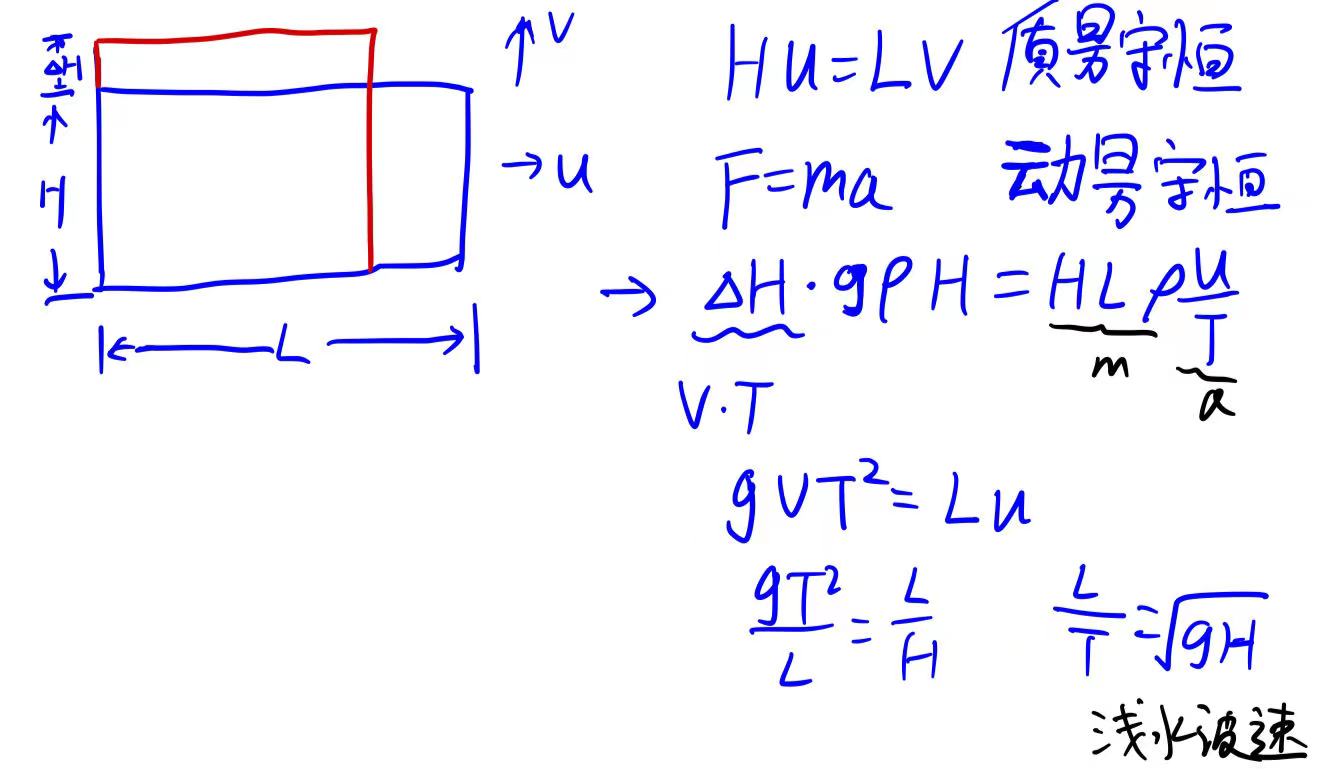 ΔH
H
L
V
→ u
Hu=LV 质量守恒
F=ma 动量守恒
→ ΔH·gρH = HLρ u/T
m
a
V·T
gVT²= Lu
gT²/L = L/H
L/T = √gH
浅水波速